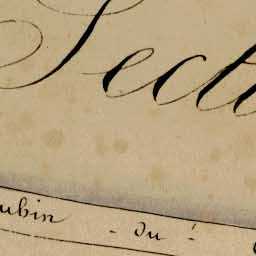 Secti
ubin - Du -